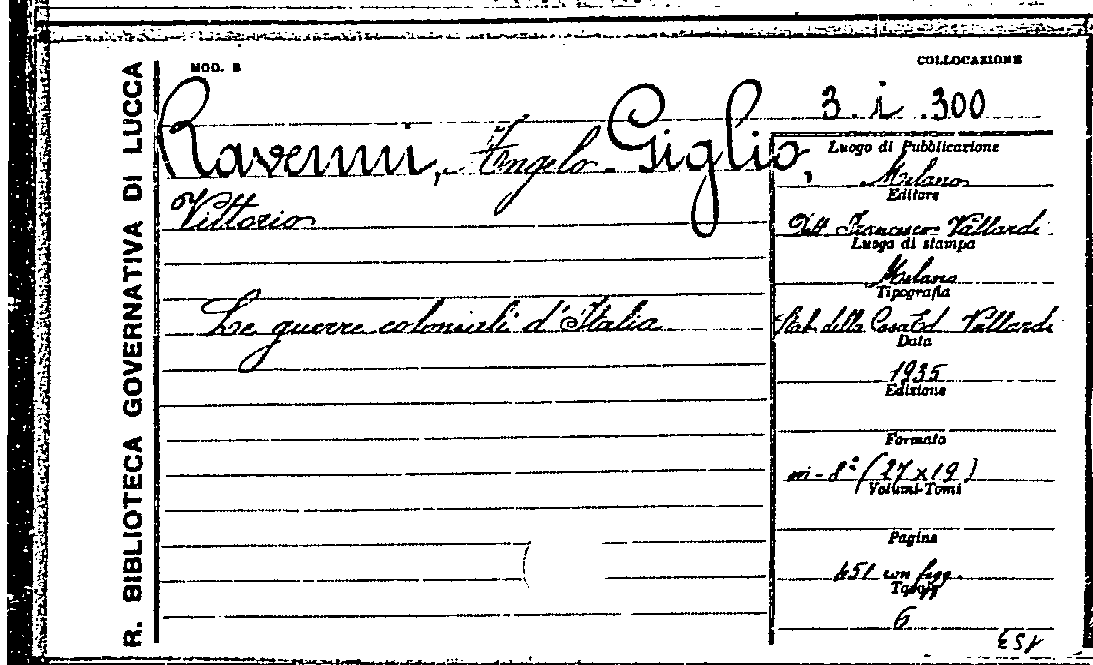 R. BIBLIOTECA GOVERNATIVA DI LUCCA
MOD. B
COLLOCAZIONE
3. i .300
Ravenni, Angelo - Giglio,
Vittorio
Le guerre coloniali d'Italia
Luogo di Pubblicazione
Milano
Editore
Dott. Francesco Vallardi
Luogo di stampa
Milano
Tipografia
Stab. della Casa Ed. Vallardi
Data
1935
Edizione
Formato
in-8° (27 x 19)
Volumi-Tomi
Pagine
651 con figg.
Tavole
6